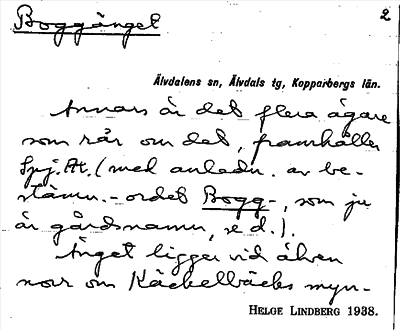 Boggänget
2
Älvdalens sn, Älvdals tg, Kopparbergs län.
Annars är det flera ägare
som rår om det, framhåller
Spj. At. (med anledn. av be-
stämn.-ordet Bogg-, som ju
är gårdsnamn, se d.).
Änget ligger vid älven
norr om Käckelbäcks myn-
HELGE LINDBERG 1938.